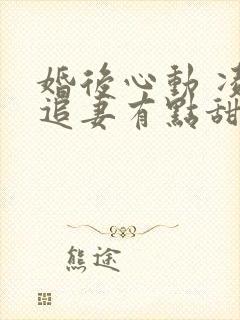 婚後心動 凌
追妻有點甜
熊途